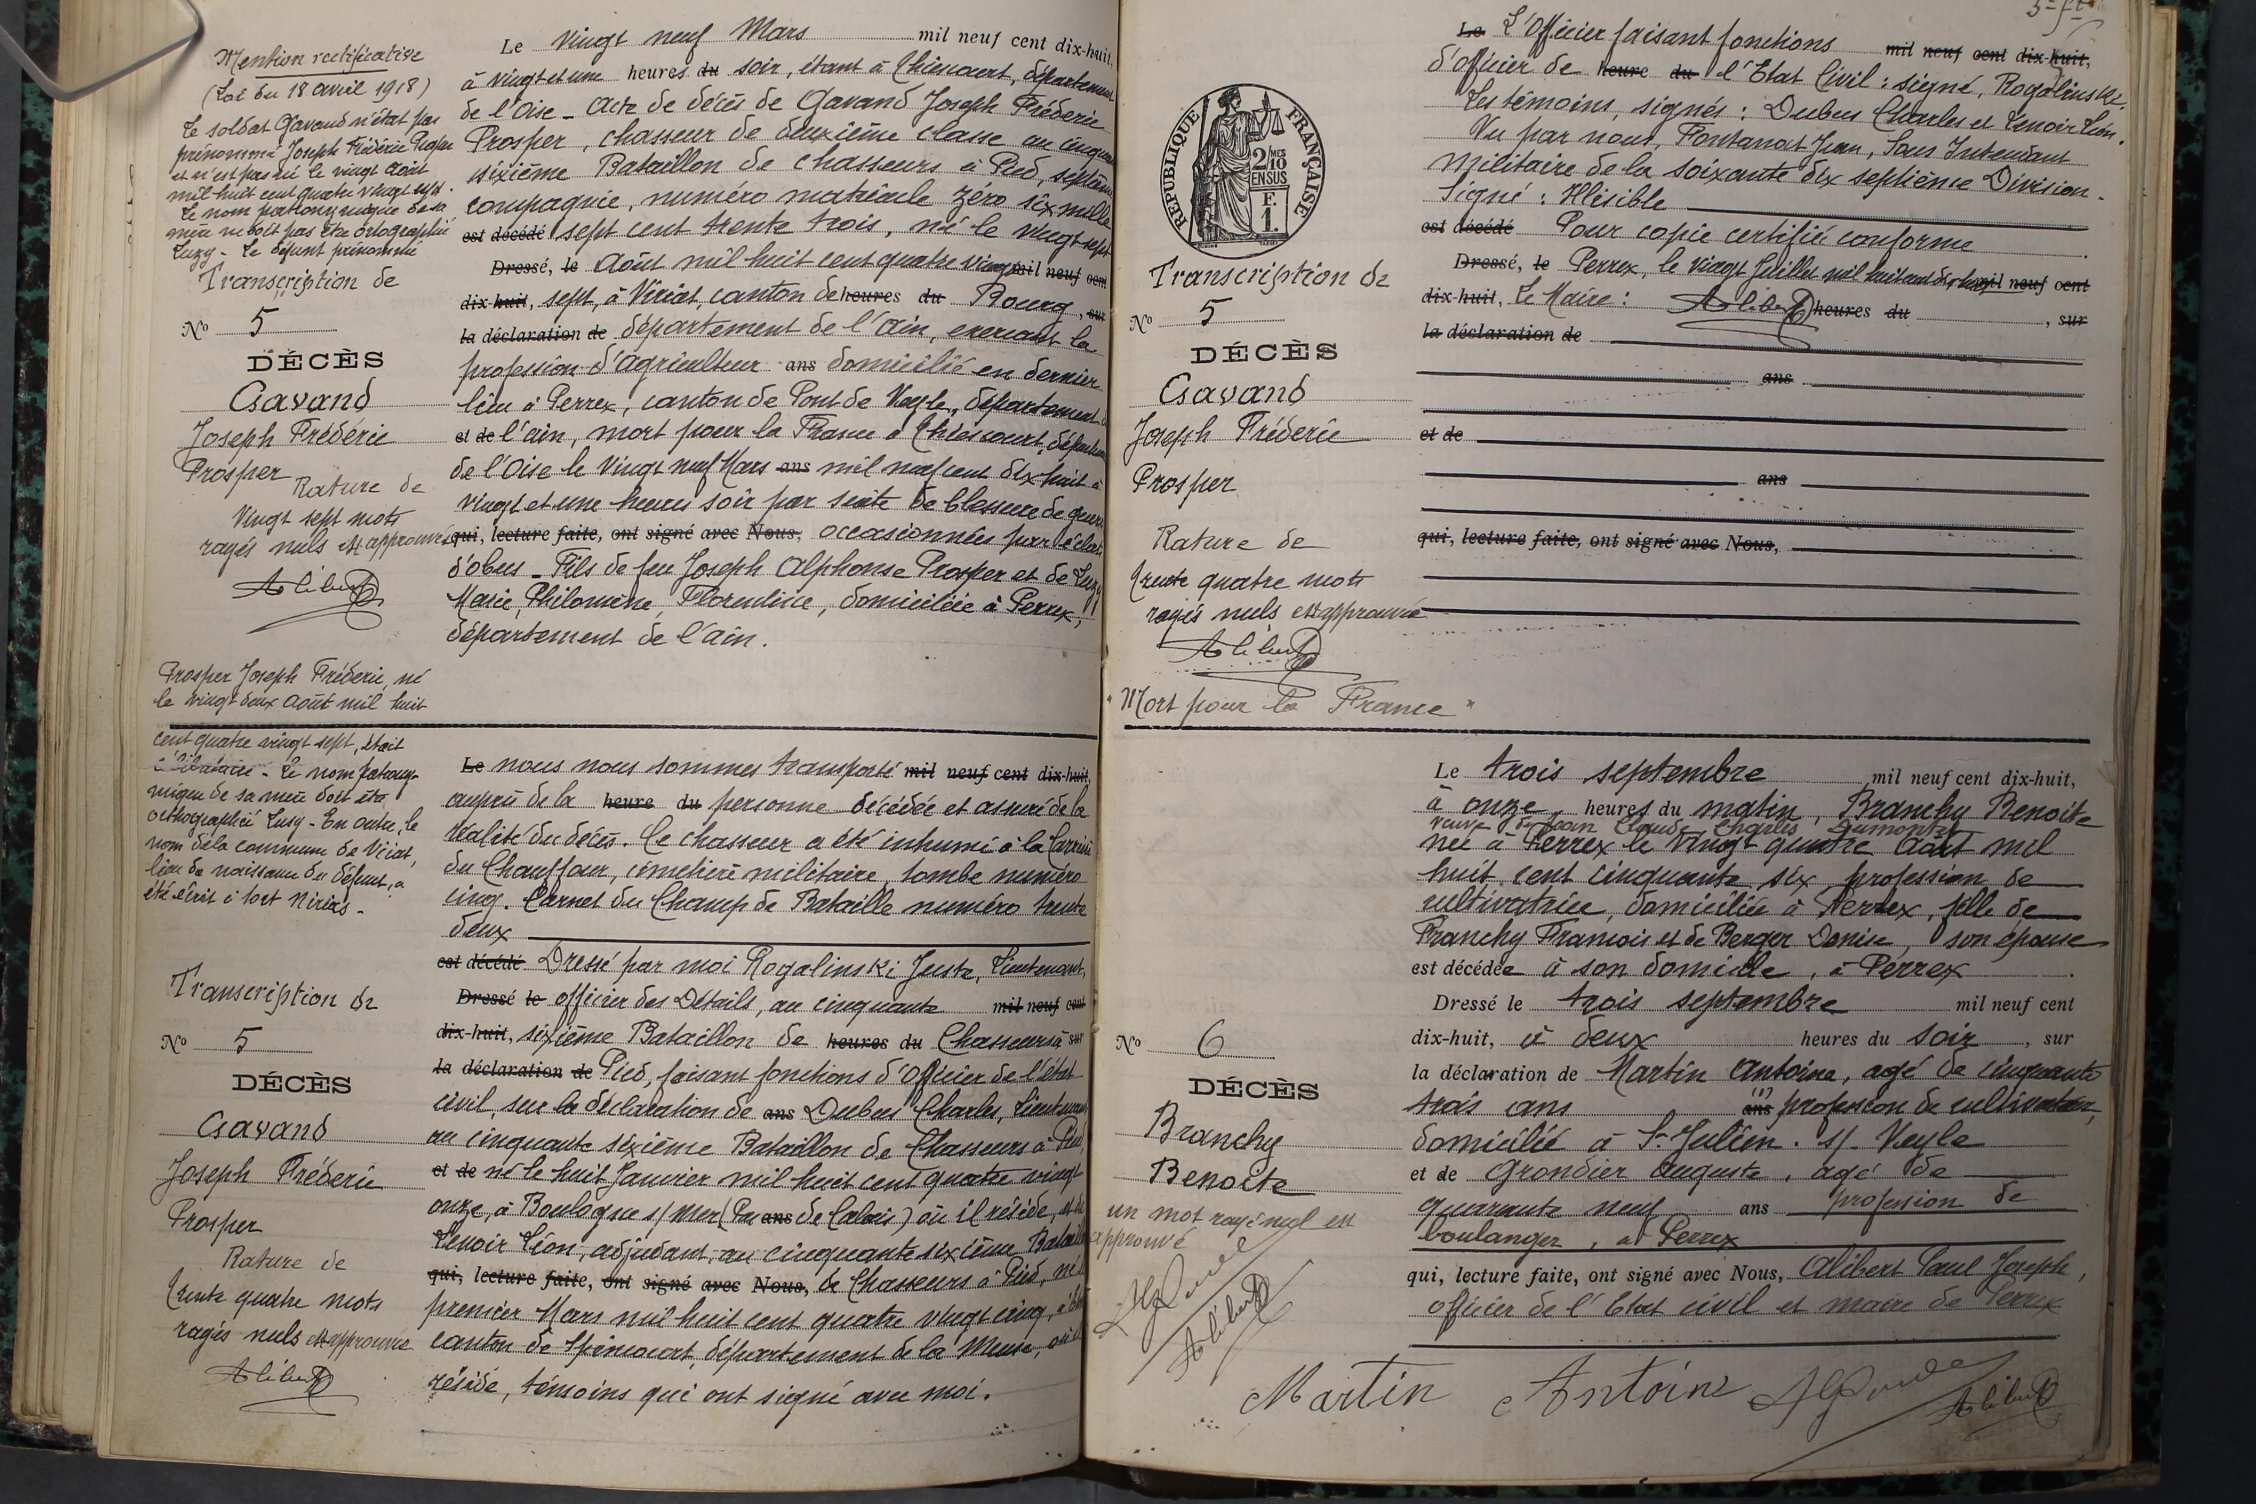 Mention rectificative
(Loi du 18 avril 1918)
Le soldat Gavand n'était pas
prénommé Joseph Frédéric Prosper
et n'est pas né le vingt août
mil huit cent quatre vingt sept.
Le nom patronymique de sa
mère ne doit pas être ortographié
Luzy - Le défunt prénommé
Transcription de
No 5
DÉCÈS
Gavand
Joseph Frédéric
Prosper
Rature de
Vingt sept mots
rayés nuls et approuvés
Alibert
Prosper Joseph Frédéric, né
le vingt deux août mil huit
cent quatre vingt sept, était
célibataire - Le nom patrony-
mique de sa mère doit être
orthographié Lusy - En outre, le
nom de la commune de Viriat,
lieu de naissance du défunt, a
été écrit à tort
Le vingt neuf Mars mil neuf cent dix-huit,
à vingt et une heures du soir, étant à Thiescourt, département
de l'Oise - acte de décès de Gavand Joseph Fréderic
Prosper, chasseur de deuxième classe au cinquante
sixième Bataillon de chasseurs à Pied, septième
compagnie, numéro matricule zéro six mille
est décédé sept cent trente trois, né le vingt sept
Dressé, le Août mil huit cent quatre vingt mil neuf cent
dix-huit, sept, à Viriat, canton de heures du Bourg, sur
la déclaration de département de l'ain, exerçant la
profession d'agriculteur ans domicilié en dernier
lieu à Perrex, canton de Pont de Veyle, département
et de l'ain, mort pour la France à Thiescourt, département
de l'Oise le vingt neuf Mars ans mil neuf cent dix huit à
vingt et une heures soir par suite de blessure de guerre
qui, lecture faite, ont signé avec Nous, occasionnées par éclat
d'obus - Fils de feu Joseph Alphonse Prosper et de Luzy
Marie Philomène Florentine, domiciliée à Perrex,
département de l'ain.
Transcription de
No 5
DÉCÈS
Gavand
Joseph Fréderic
Prosper
Rature de
trente quatre mots
rayés nuls et approuvés
Alibert
Le nous nous sommes transporté mil neuf cent dix-huit,
auprès de la heure du personne décédée et assuré de la
réalité du décès. Ce chasseur a été inhumé à la Carrière
du Chauffour, cimetière militaire, tombe numéro
cinq. Carnet du Champ de Bataille numéro trente
deux
est décédé Dressé par moi Rogalinski Juste, Lieutenant,
Dressé le officier des Détails, au cinquante mil neuf cent
dix-huit, sixième Bataillon de heures du Chasseurs à sur
la déclaration de Pied, faisant fonctions d'Officier de l'état
civil, sur la déclaration de ans Dubus Charles, Lieutenant
au cinquante sixième Bataillon de Chasseurs à Pied,
et de né le huit Janvier mil huit cent quatre vingt
onze, à Boulogne s/ mer (Pas ans de Calais) où il réside, et de
Lenoir Léon, adjudant, au cinquante sixième Bataillon
qui, lecture faite, ont signé avec Nous, de Chasseurs à Pied, né le
premier Mars mil huit cent quatre vingt cinq,
canton de Spincourt, département de la Meuse, où il
réside, témoins qui ont signé avec moi.
REPUBLIQUE FRANÇAISE
2/10MES
EN SUS
1F.
Transcription de
No 5
DÉCÈS
Gavand
Joseph Fréderic
Prosper
Rature de
trente quatre mots
rayés nuls et approuvés
Alibert
"Mort pour la France"
Le L'Officier faisant fonctions mil neuf cent dix-huit,
d'officier de heure du l'Etat Civil : signé, Rogalinski.
Les témoins, signés : Dubus Charles et Lenoir Léon.
Vu par nous, Fontanat Jean, Sous Intendant
Militaire de la soixante dix septième Division.
Signé : Illisible
est décédé Pour copie certifiée conforme
Dressé, le Perrex, le vingt Juillet mil neuf cent
dix-huit, Le Maire : Alibert heures du , sur
la déclaration de
ans
et de
ans
qui, lecture faite, ont signé avec Nous,
No 6
DÉCÈS
Branchy
Benoite
un mot rayé nul et
approuvé
Alibert
Le trois septembre mil neuf cent dix-huit,
à onze heures du matin, Branchy Benoite
veuve de Jean Claude Charles Dumontet
née à Perrex le vingt quatre Août mil
huit cent cinquante six, profession de
cultivatrice, domiciliée à Perrex, fille de
Branchy François et de Berger Denise, son épouse
est décédée à son domicile, à Perrex.
Dressé le trois septembre mil neuf cent
dix-huit, à deux heures du soir, sur
la déclaration de Martin Antoine, agé de cinquante
trois ans ans (1) profession de cultivateur,
domicilié à St Julien. s/ Veyle
et de Grondier Auguste, agé de
quarante neuf ans profession de
boulanger, à Perrex
qui, lecture faite, ont signé avec Nous, Alibert Paul Joseph,
officier de l'Etat civil et maire de Perrex
Martin Antoine Alibert